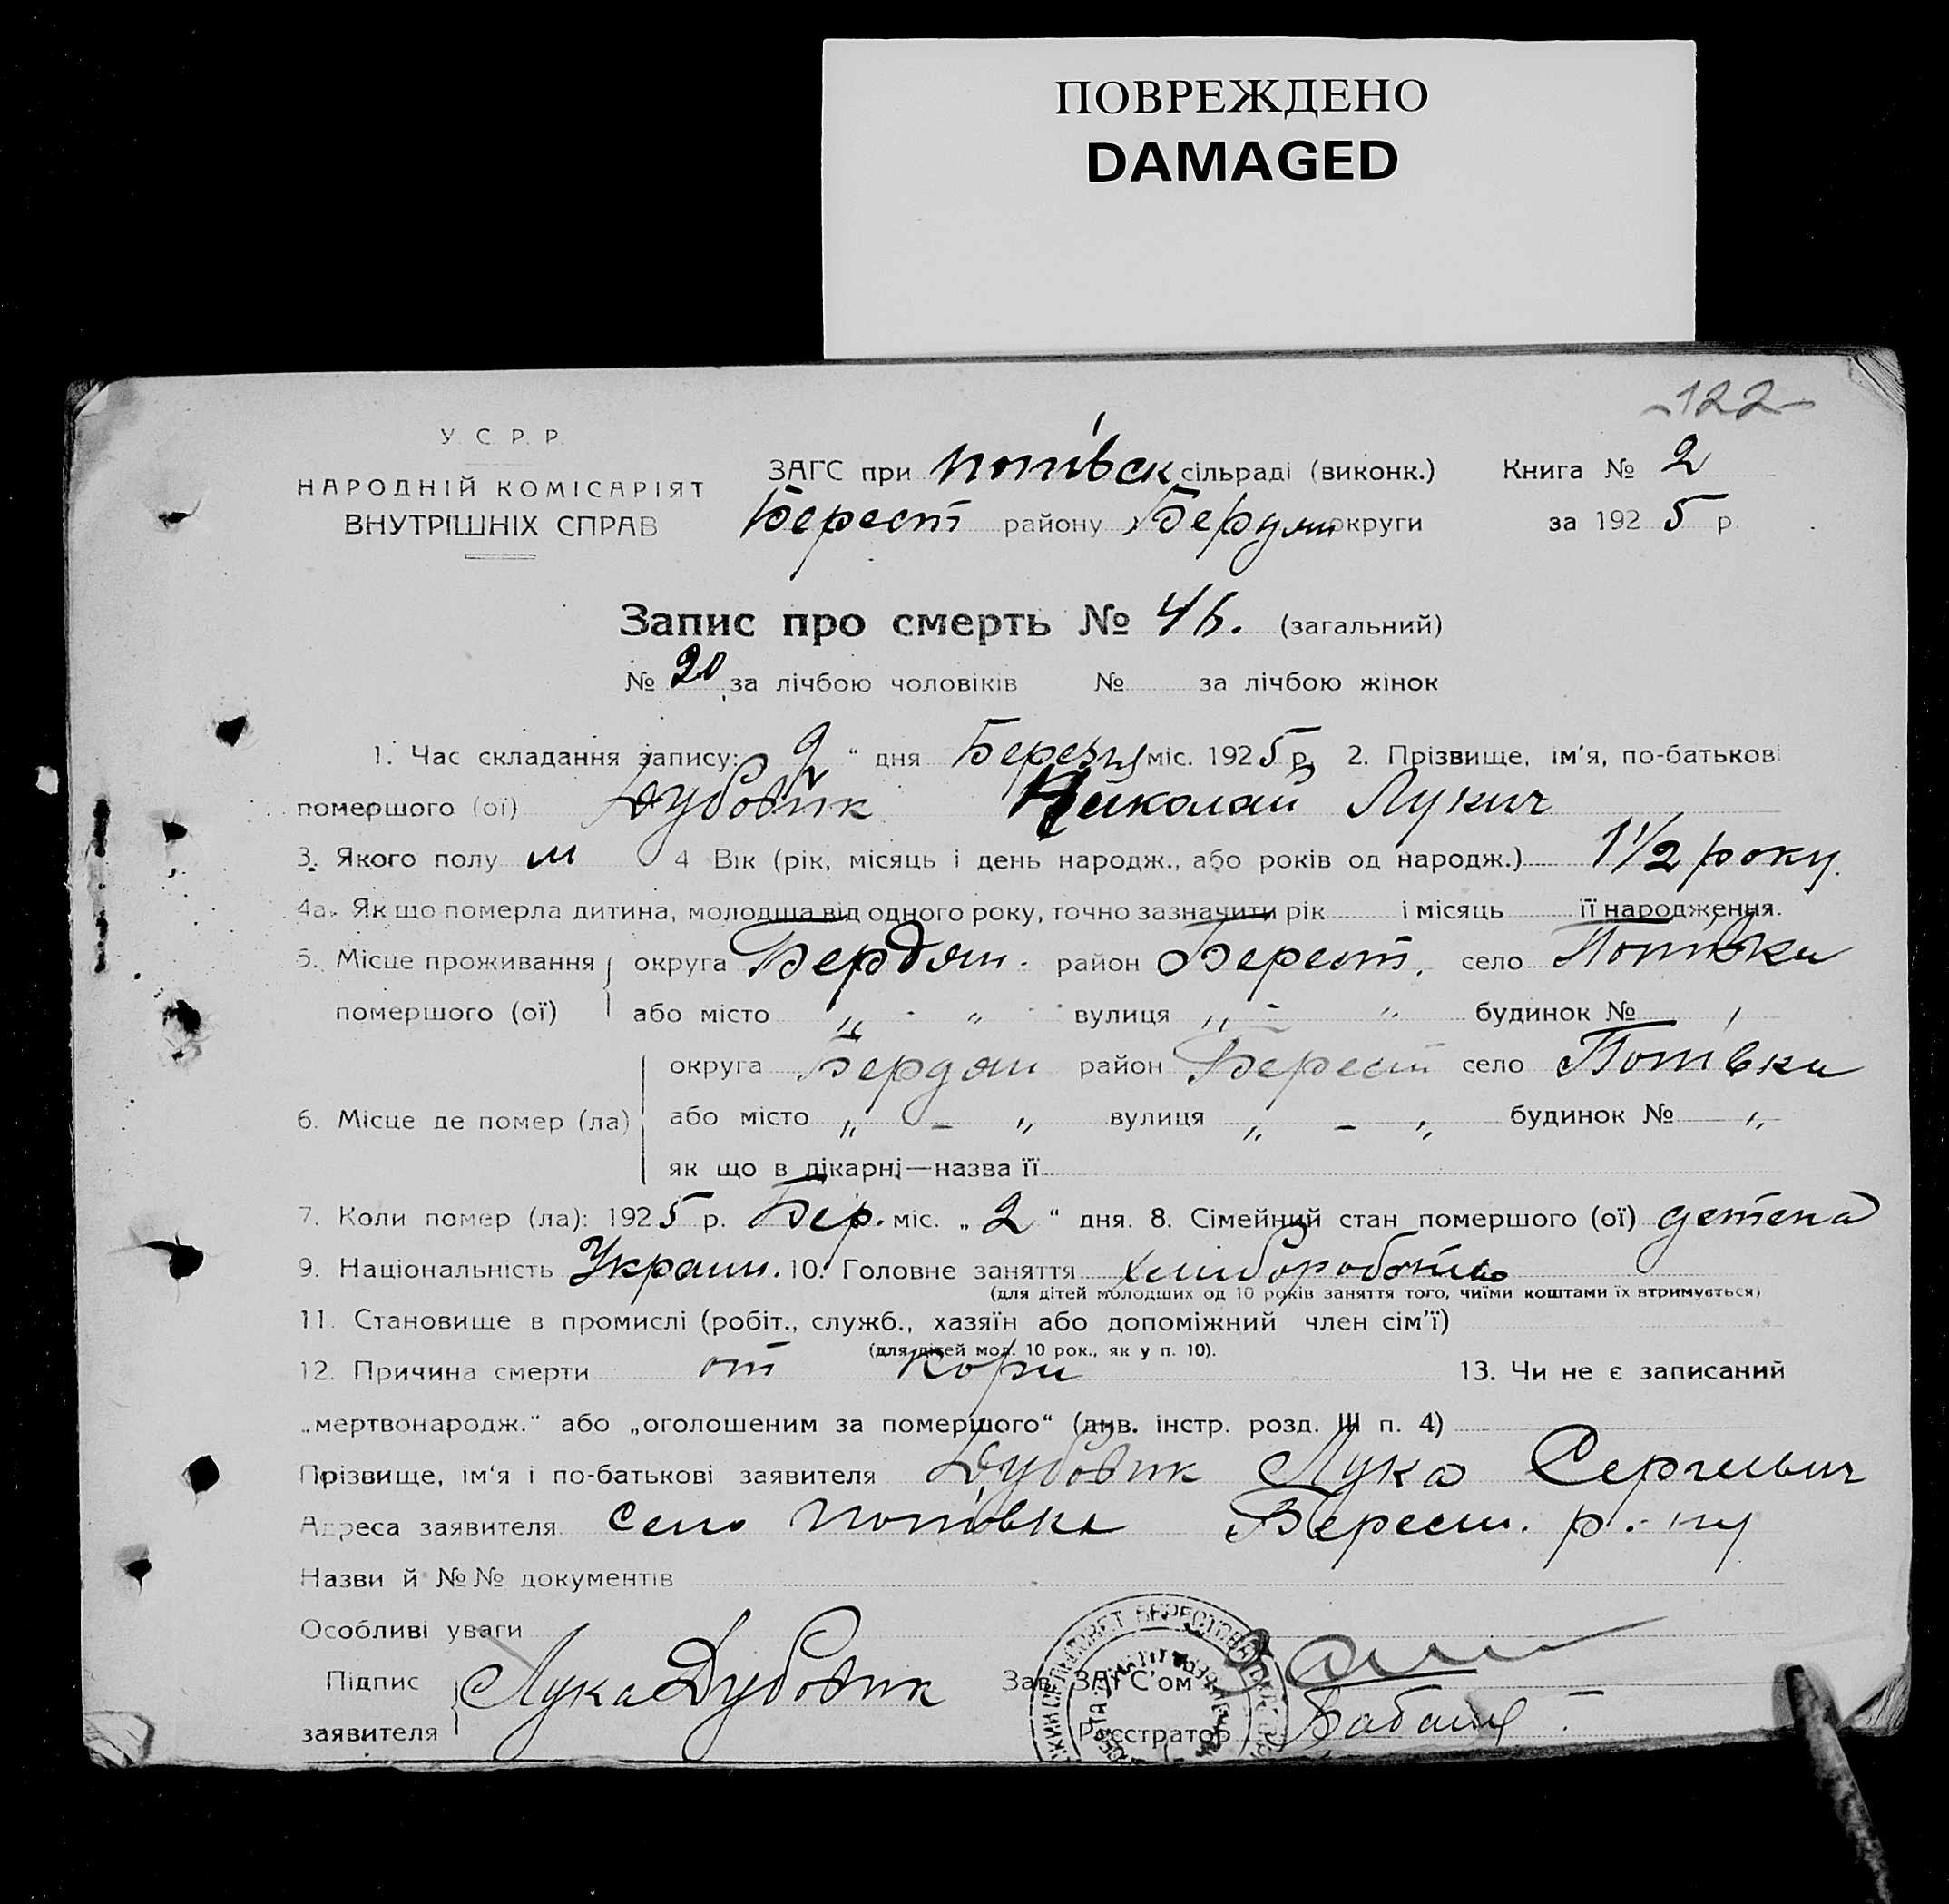 ПОВРЕЖДЕНО
DAMAGED
122
У. С. Р. Р.
НАРОДНІЙ КОМІСАРІЯТ
ВНУТРІШНІХ СПРАВ
ЗАГС при Попівск сільраді (виконк.) Книга № 2
Берест району Бердян округи за 1925 р.
Запис про смерть № 46. (загальний)
№ 20 за лічбою чоловіків № за лічбою жінок
1. Час складання запису: 2 " дня Березня міс. 1925 р. 2. Прізвище, ім'я, по-батькові
помершого (ої) Дубовик Николай Лукич
3. Якого полу м 4 Вік (рік, місяць і день народж., або років од народж.) 1 1/2 року.
4а. Як що померла дитина, молодша від одного року, точно зазначити рік і місяць її народження.
5. Місце проживання округа Бердян. район Берест. село Попівка
помершого (ої) або місто " - " вулиця " - " будинок №
округа Бердян район Берест село Попівка
6. Місце де помер (ла) або місто " - " вулиця " - " будинок № "
як що в лікарні—назва її
7. Коли помер (ла): 1925 р. Бер. міс. „ 2 " дня. 8. Сімейний стан помершого (ої) детена
9. Національність Украин. 10. Головне заняття хлиборобство
(для дітей молодших од 10 років заняття того, чиїми коштами їх втримується)
11. Становище в промислі (робіт., служб., хазяїн або допоміжний член сім'ї)
(для дітей мол. 10 рок., як у п. 10).
12. Причина смерти от кори 13. Чи не є записаний
„мертвонародж." або „оголошеним за помершого" (див. інстр. розд. III п. 4)
Прізвище, ім'я і по-батькові заявителя Дубовик Лука Сергеевич
Адреса заявителя село Попівка Берест. р.-ну
Назви й №№ документів
Особливі уваги
Підпис Лука Дубовик Зав. ЗАГС'ом
заявителя Реєстратор